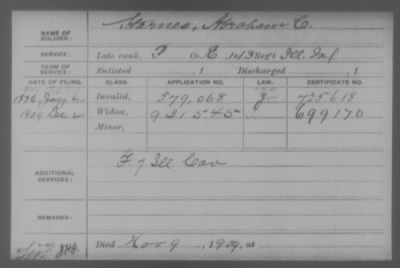 NAME OF SOLDIER: Abraham C.
SERVICE: Late rank, P Co. E, 113 Reg't Ill. Inf
TERM OF SERVICE: Enlisted 1 Discharged 1
DATE OF FILING. CLASS. APPLICATION NO. LAW. CERTIFICATE NO.
Invalid, 579,068 735618
1909 Dec 2 Widow, 931545 699170
Minor,
ADDITIONAL SERVICES: F 7 Ill Cav
REMARKS:
Died Nov 9, 1909, at